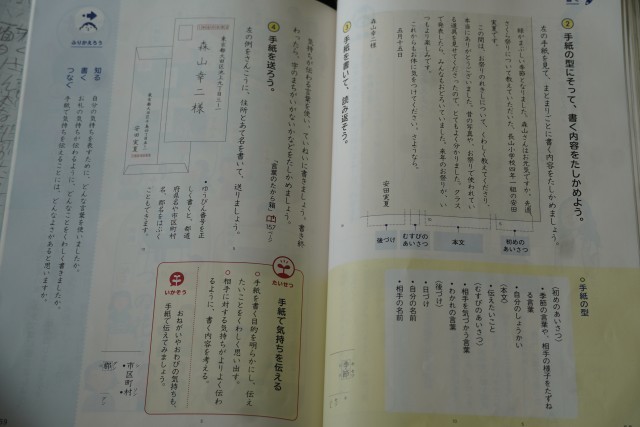 ② 手紙の型にそって、書く内容をたしかめよう。
左の手紙を見て、まとまりごとに書く内容をたしかめましょう。
実夏です。
この間は、お祭りのれきしについて、くわしく教えてくださり、
本当にありがとうございました。昔の写真や、お祭りで使われてい
る道具を見せてくださったので、とてもよく分かりました。クラス
で発表したら、みんなもおどろいていました。来年のお祭りが、い
つもより楽しみです。
これからもお体に気をつけてください。さようなら。
五月十五日
安田 実夏
森山幸二様
初めの
あいさつ
本文
むすびの
あいさつ
後づけ
手紙の型
(初めのあいさつ)
・季節の言葉や、相手の様子をたずね
る言葉
・自分のしょうかい
(本文)
・伝えたいこと
(むすびのあいさつ)
・相手を気づかう言葉
・わかれの言葉
(後づけ)
・日づけ
・自分の名前
・相手の名前
③ 手紙を書いて、読み返そう。
気持ちが伝わる言葉を使い、ていねいに書きましょう。書き終
わったら、字のまちがいがないかなどをたしかめましょう。
「言葉のたから箱」
157
④ 手紙を送ろう。
左の例をさんこうに、住所とあて名を書いて、送りましょう。
森山幸二様
安田実夏
・ゆうびん番号を正
しく書くと、都道
府県名や市区町村
名、郡名をはぶく
こともできます。
たいせつ
手紙で気持ちを伝える
手紙を書く目的を明らかにし、伝え
たいことをくわしく思い出す。
相手に対する気持ちがよりよく伝わ
るように、書く内容を考える。
いかそう
おねがいやおわびの気持ちも、
手紙で伝えてみましょう。
ふりかえろう
知る
自分の気持ちを表すために、どんな言葉を使いましたか。
書く
お礼の気持ちが伝わるように、どんなことをくわしく書きましたか。
つなぐ
手紙で気持ちを伝えることには、どんなよさがあると思いますか。
・市区町村